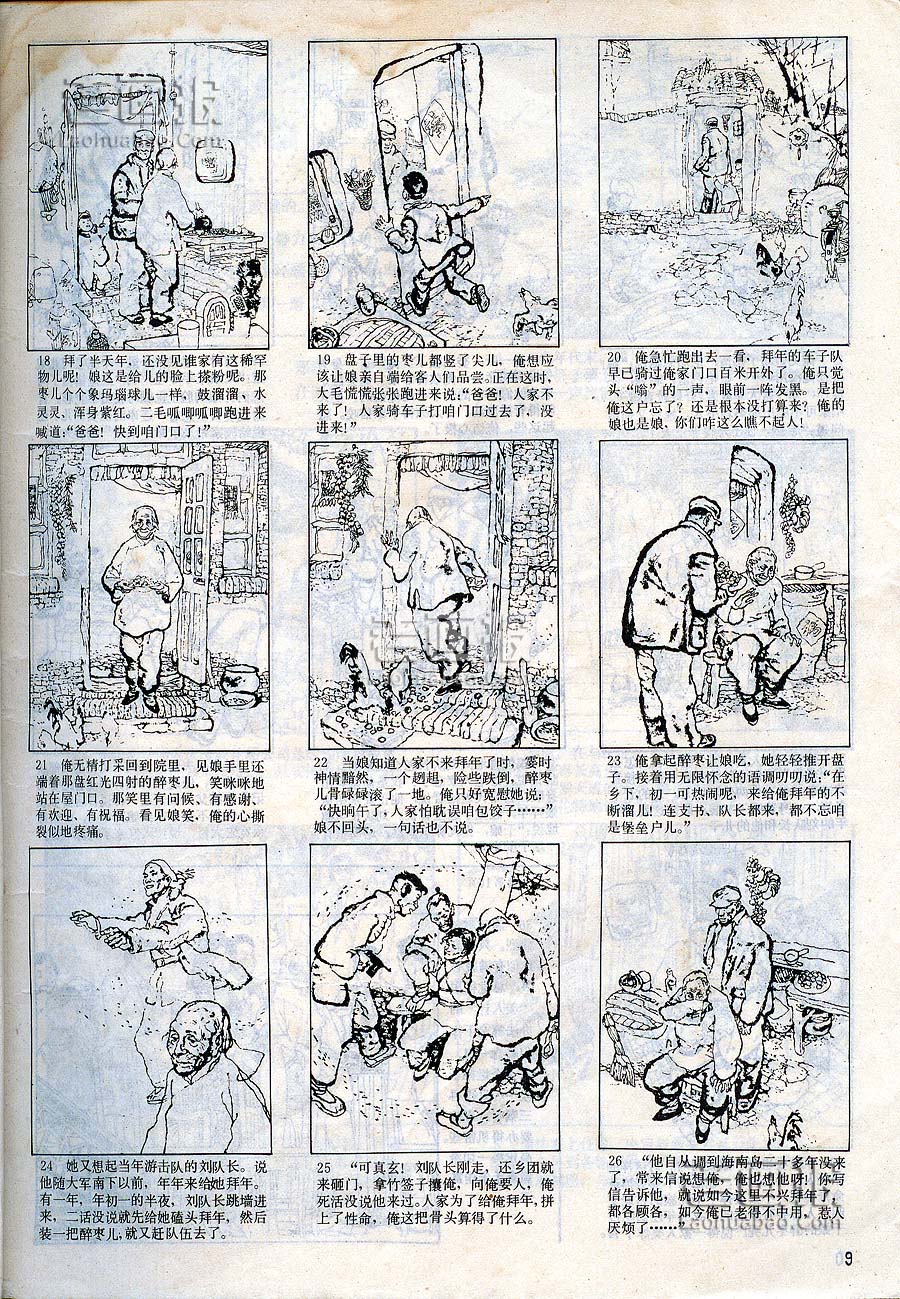 老画报
Laohuabao.Com
18 拜了半天年，还没见谁家有这稀罕
物儿呢！娘这是给儿的脸上搽粉呢。那
枣儿个个象玛瑙球儿一样，鼓溜溜、水
灵灵、浑身紫红。二毛呱唧呱唧跑进来
喊道：“爸爸！快到咱门口了！”
19 盘子里的枣儿都竖了尖儿，俺想应
该让娘亲自端给客人们品尝。正在这时，
大毛慌慌张张跑进来说：“爸爸！人家不
来了！人家骑车子打咱门口过去了，没
进来！”
20 俺急忙跑出去一看，拜年的车子队
早已骑过俺家门口百米开外了。俺只觉
头“嗡”的一声，眼前一阵发黑。是把
俺这户忘了？还是根本没打算来？俺的
娘也是娘、你们咋这么瞧不起人！
21 俺无精打采回到院里，见娘手里还
端着那盘红光四射的醉枣儿，笑咪咪地
站在屋门口。那笑里有问候、有感谢、
有欢迎、有祝福。看见娘笑，俺的心撕
裂似地疼痛。
老画报
laohuabao.Com
22 当娘知道人家不来拜年了时，霎时
神情黯然，一个趔趄，险些跌倒，醉枣
儿骨碌碌滚了一地。俺只好宽慰她说：
“快晌午了，人家怕耽误咱包饺子……”
娘不回头，一句话也不说。
23 俺拿起醉枣让娘吃，她轻轻推开盘
子。接着用无限怀念的语调叨叨说：“在
乡下，初一可热闹呢，来给俺拜年的不
断溜儿！连支书、队长都来，都不忘咱
是堡垒户儿。”
24 她又想起当年游击队的刘队长。说
他随大军南下以前，年年来给她拜年。
有一年，年初一的半夜，刘队长跳墙进
来，二话没说就先给她磕头拜年，然后
装一把醉枣儿，就又赶队伍去了。
25 “可真玄！刘队长刚走，还乡团就
来砸门，拿竹签子攘俺，向俺要人，俺
死活没说他来过。人家为了给俺拜年，拼
上了性命，俺这把骨头算得了什么。
26 “他自从调到海南岛二十多年没来
了，常来信说想俺，俺也想他呀！你写
信告诉他，就说如今这里不兴拜年了，
都各顾各，如今俺已老得不中用，惹人
厌烦了……”
老画报
Laohuabao.Com
09